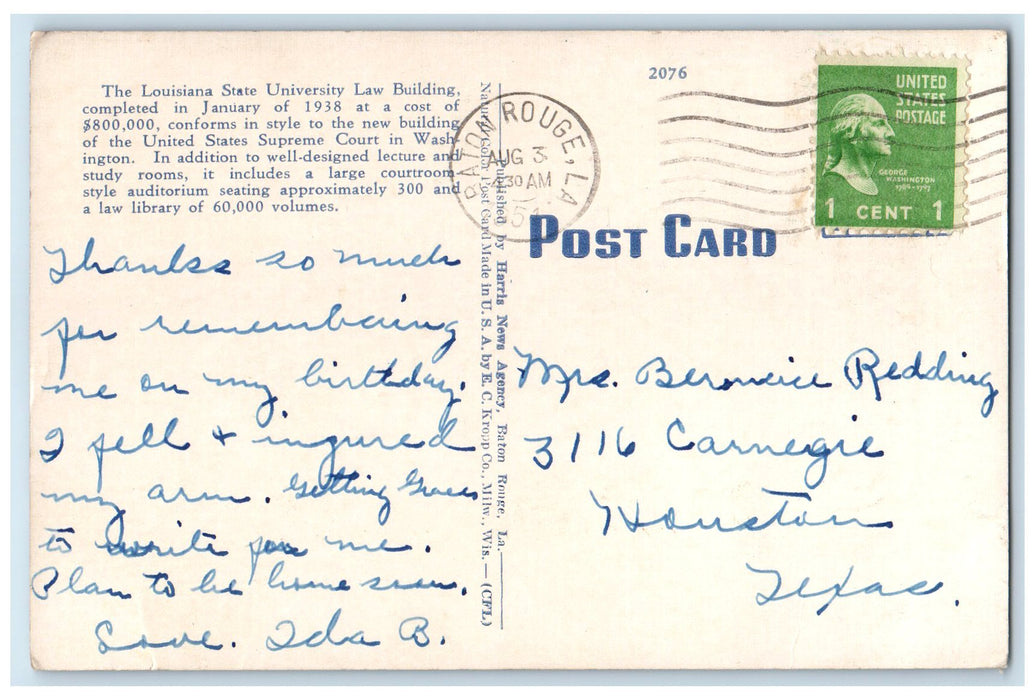 The Louisiana State University Law Building,
completed in January of 1938 at a cost of
$800,000, conforms in style to the new building
of the United States Supreme Court in Wash-
ington. In addition to well-designed lecture and
study rooms, it includes a large courtroom
style auditorium seating approximately 300 and
a law library of 60,000 volumes.
Thanks so much
for remembering
me on my birthday.
I fell & ingured
my arm. Getting
to write for me.
Plan to be home soon.
Love. Ida B.
Natural Color Post Card Made in U. S. A. by E. C. Kropp Co., Milw., Wis.—(CFL)
Published by Harris News Agency, Baton Rouge, La.
2076
BATON ROUGE, LA
AUG 3
4:30 AM
UNITED
STATES
POSTAGE
GEORGE
WASHINGTON
1789-1797
1 CENT 1
POST CARD
Mrs. Berneice Redding
3116 Carnegie
Houston
Texas.